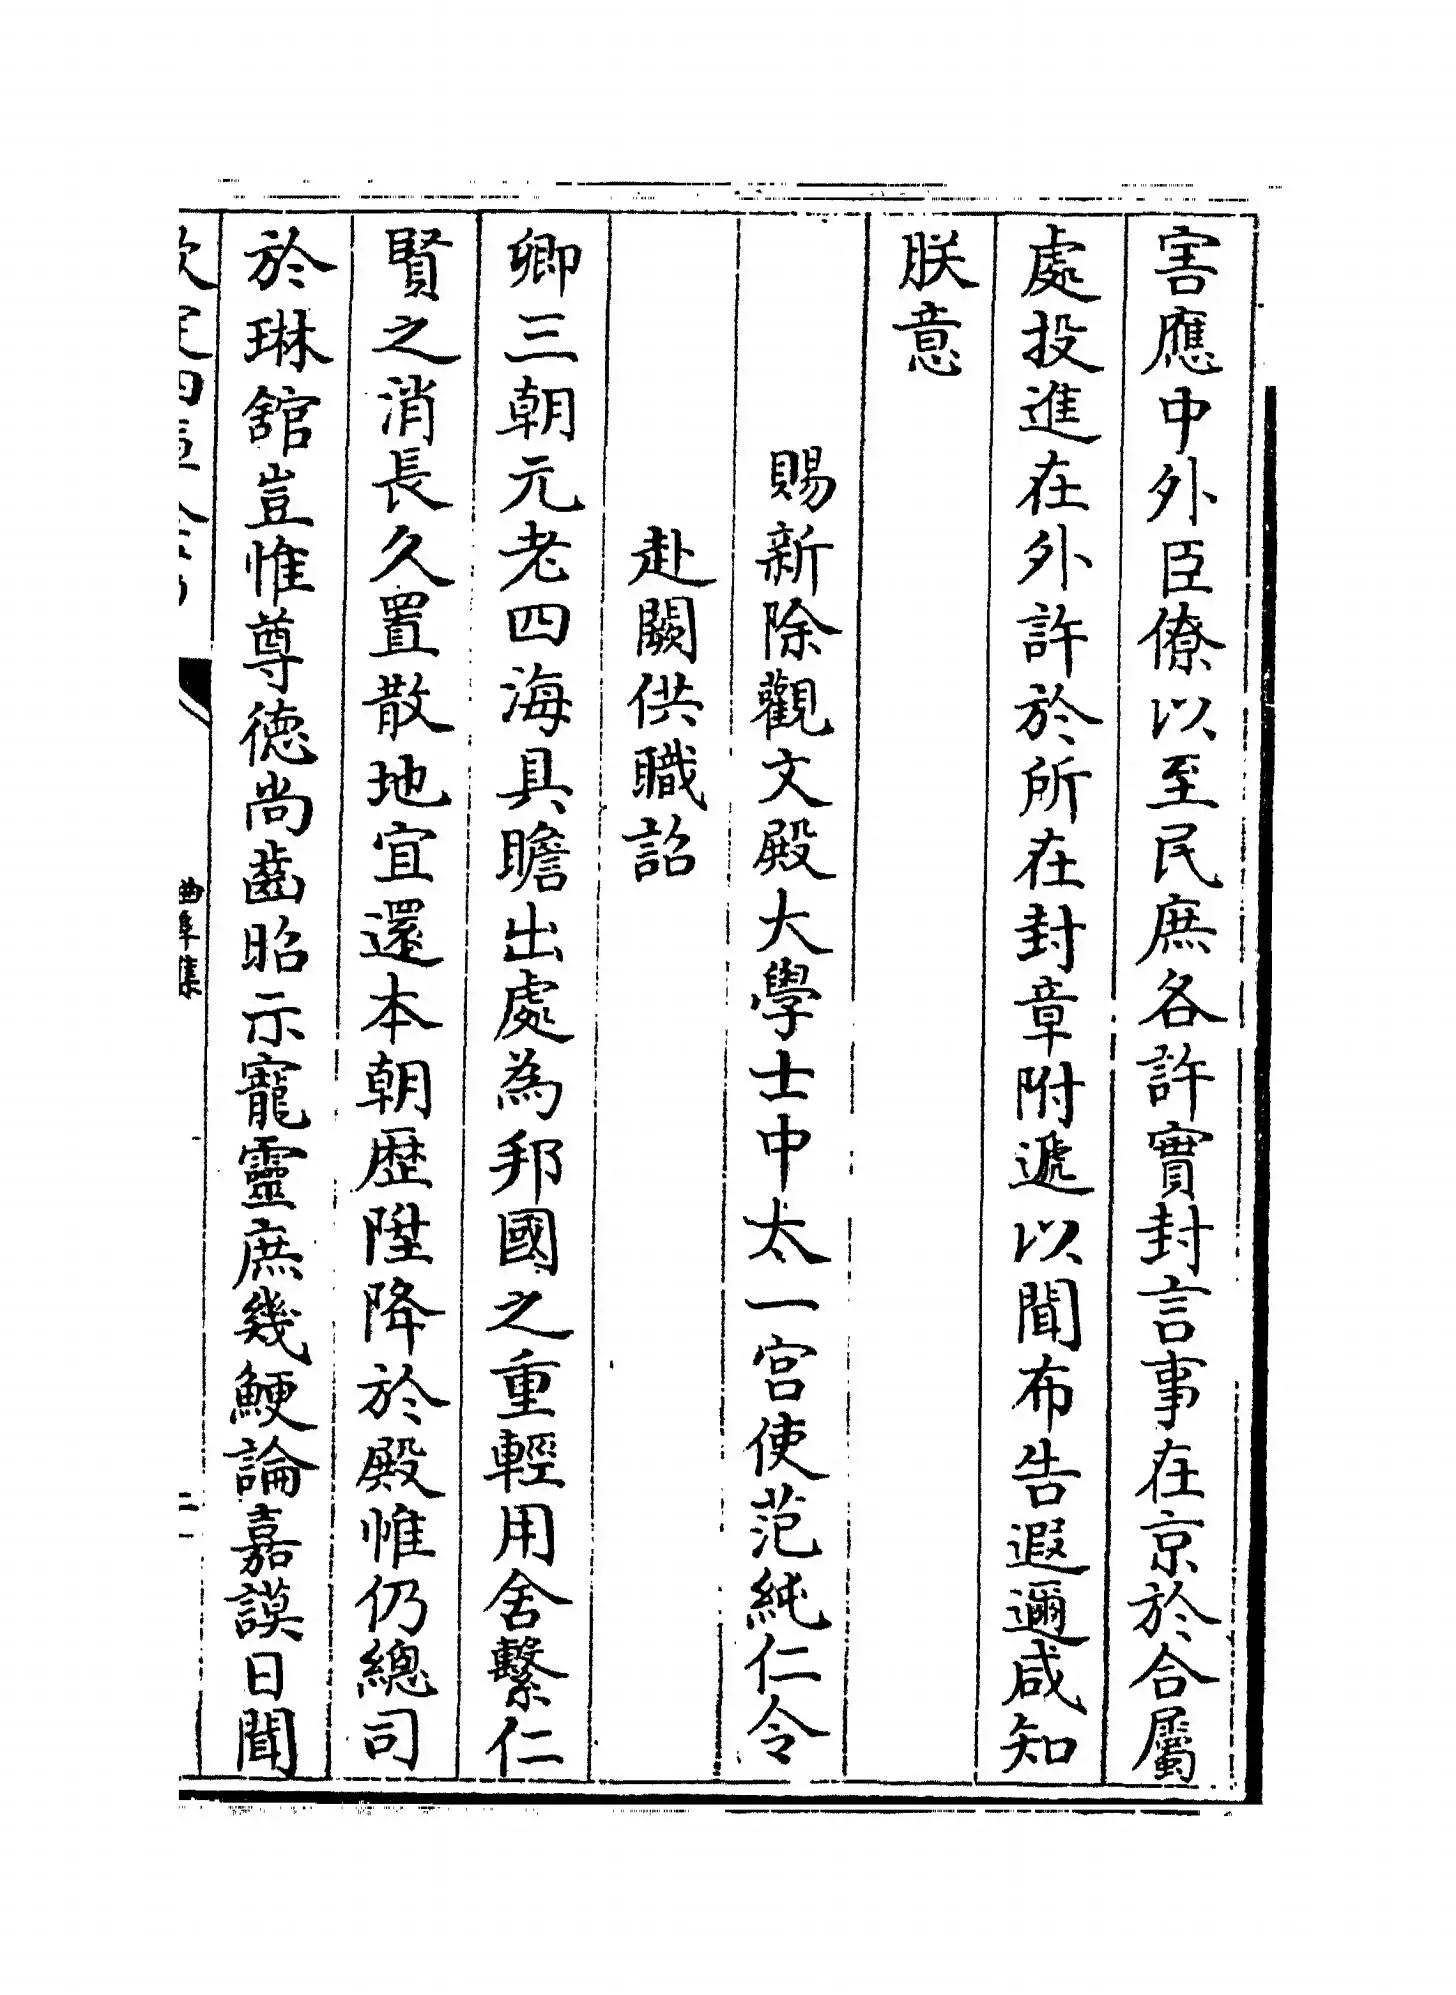 害應中外臣僚以至民庶各許實封言事在京於合屬
處投進在外許於所在封章附遞以聞布告遐邇咸知
朕意
賜新除觀文殿大學士中太一宮使范純仁令
赴闕供職詔
卿三朝元老四海具瞻出處為邦國之重輕用舍繫仁
賢之消長久置散地宜還本朝歴陞降於殿惟仍總司
於琳舘豈惟尊德尚齒昭示寵靈庶幾鯁論嘉謨日聞
曲阜集
二